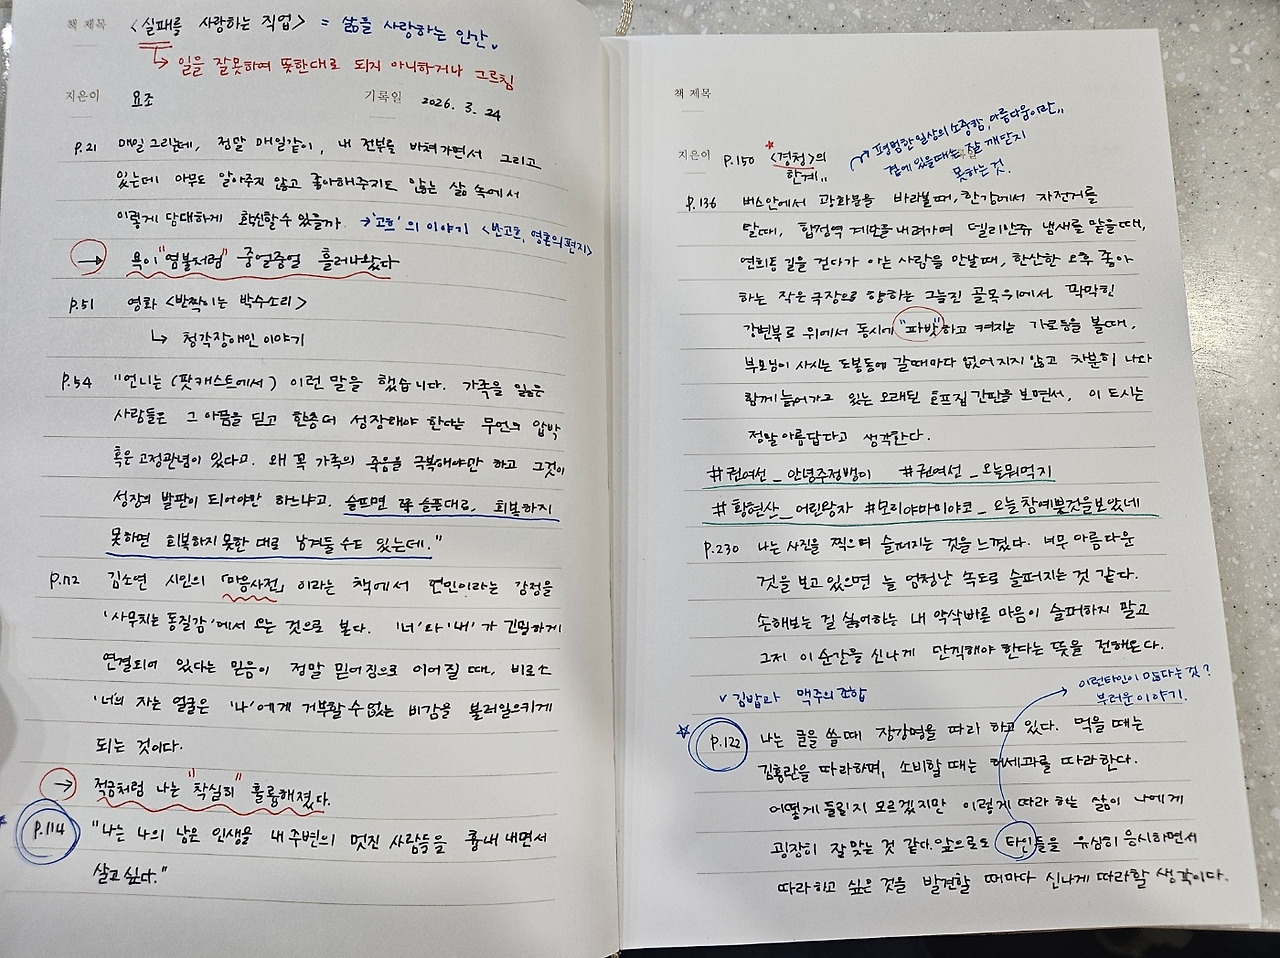 책 제목 <실패를 사랑하는 직업> = 삶을 사랑하는 인간.
↳ 일을 잘못하여 뜻한대로 되지 아니하거나 그르침
지은이 요조 기록일 2026. 3. 24
p.21 매일 그리는데, 정말 매일같이, 내 전부를 바쳐가면서 그리고
있는데 아무도 알아주지 않고 좋아해주지도 않는 삶 속에서
이렇게 담대하게 확신할 수 있을까. → '고흐'의 이야기 <반고흐, 영혼의 편지>
→ 욕이 "염불처럼" 중얼중얼 흘러나왔다
p.51 영화 <반짝이는 박수소리>
↳ 청각장애인 이야기
p.54 "언니는 (팟캐스트에서) 이런 말을 했습니다. 가족을 잃은
사람들은 그 아픔을 딛고 한층 더 성장해야 한다는 무언의 압박
혹은 고정관념이 있다고. 왜 꼭 가족의 죽음을 극복해야만 하고 그것이
성장의 발판이 되어야만 하느냐고. 슬프면 슬픈대로, 회복하지
못하면 회복하지 못한 대로 남겨둘 수도 있는데."
p.112 김소연 시인의 「마음사전」 이라는 책에서 연민이라는 감정을
'사무치는 동질감'에서 오는 것으로 본다. '너'와 '내'가 긴밀하게
연결되어 있다는 믿음이 정말 믿어짐으로 이어질 때, 비로소
'너'의 자는 얼굴은 '나'에게 거부할 수 없는 비감을 불러일으키게
되는 것이다.
→ 적금처럼 나는 "착실히" 훌륭해졌다.
p.114 "나는 나의 남은 인생을 내 주변의 멋진 사람들을 흉내 내면서
살고 싶다."
책 제목
지은이 p.150 <경청>의
한계,,
평범한 일상의 소중함, 아름다움이란,,
곁에 있을때는 잘 깨닫지
못하는 것.
p.136 버스안에서 광화문을 바라볼 때, 한강에서 자전거를
탈때, 합정역 계단을 내려가며 델리만쥬 냄새를 맡을때,
연희동 길을 걷다가 아는 사람을 만날때, 한산한 오후 좋아
하는 작은 극장으로 향하는 그늘진 골목위에서 꽉막힌
강변북로 위에서 동시에 "파밧"하고 켜지는 가로등을 볼때,
부모님이 사시는 도봉동에 갈때마다 없어지지 않고 차분히 나와
함께 늙어가고 있는 오래된 호프집 간판을 보면서, 이 도시는
정말 아름답다고 생각한다.
#권여선_안녕주정뱅이 #권여선_오늘뭐먹지
#황현산_어린왕자 #모리야마미야코_오늘참예쁜것을보았네
p.230 나는 사진을 찍으며 슬퍼지는 것을 느꼈다. 너무 아름다운
것을 보고 있으면 늘 엄청난 속도로 슬퍼지는 것 같다.
손해보는 걸 싫어하는 내 약삭빠른 마음이 슬퍼하지 말고
그저 이 순간을 신나게 만끽해야 한다는 뜻을 전해온다.
✓ 김밥과 맥주의 조합
이런타인이 많다는 것?
부러운 이야기.
p.122 나는 글을 쓸 때 장강명을 따라 하고 있다. 먹을 때는
김홍란을 따라하며, 소비할 때는 허세과를 따라한다.
어떻게 들릴지 모르겠지만 이렇게 따라 하는 삶이 나에게
굉장히 잘 맞는 것 같다. 앞으로도 타인들을 유심히 응시하면서
따라하고 싶은 것을 발견할 때마다 신나게 따라할 생각이다.